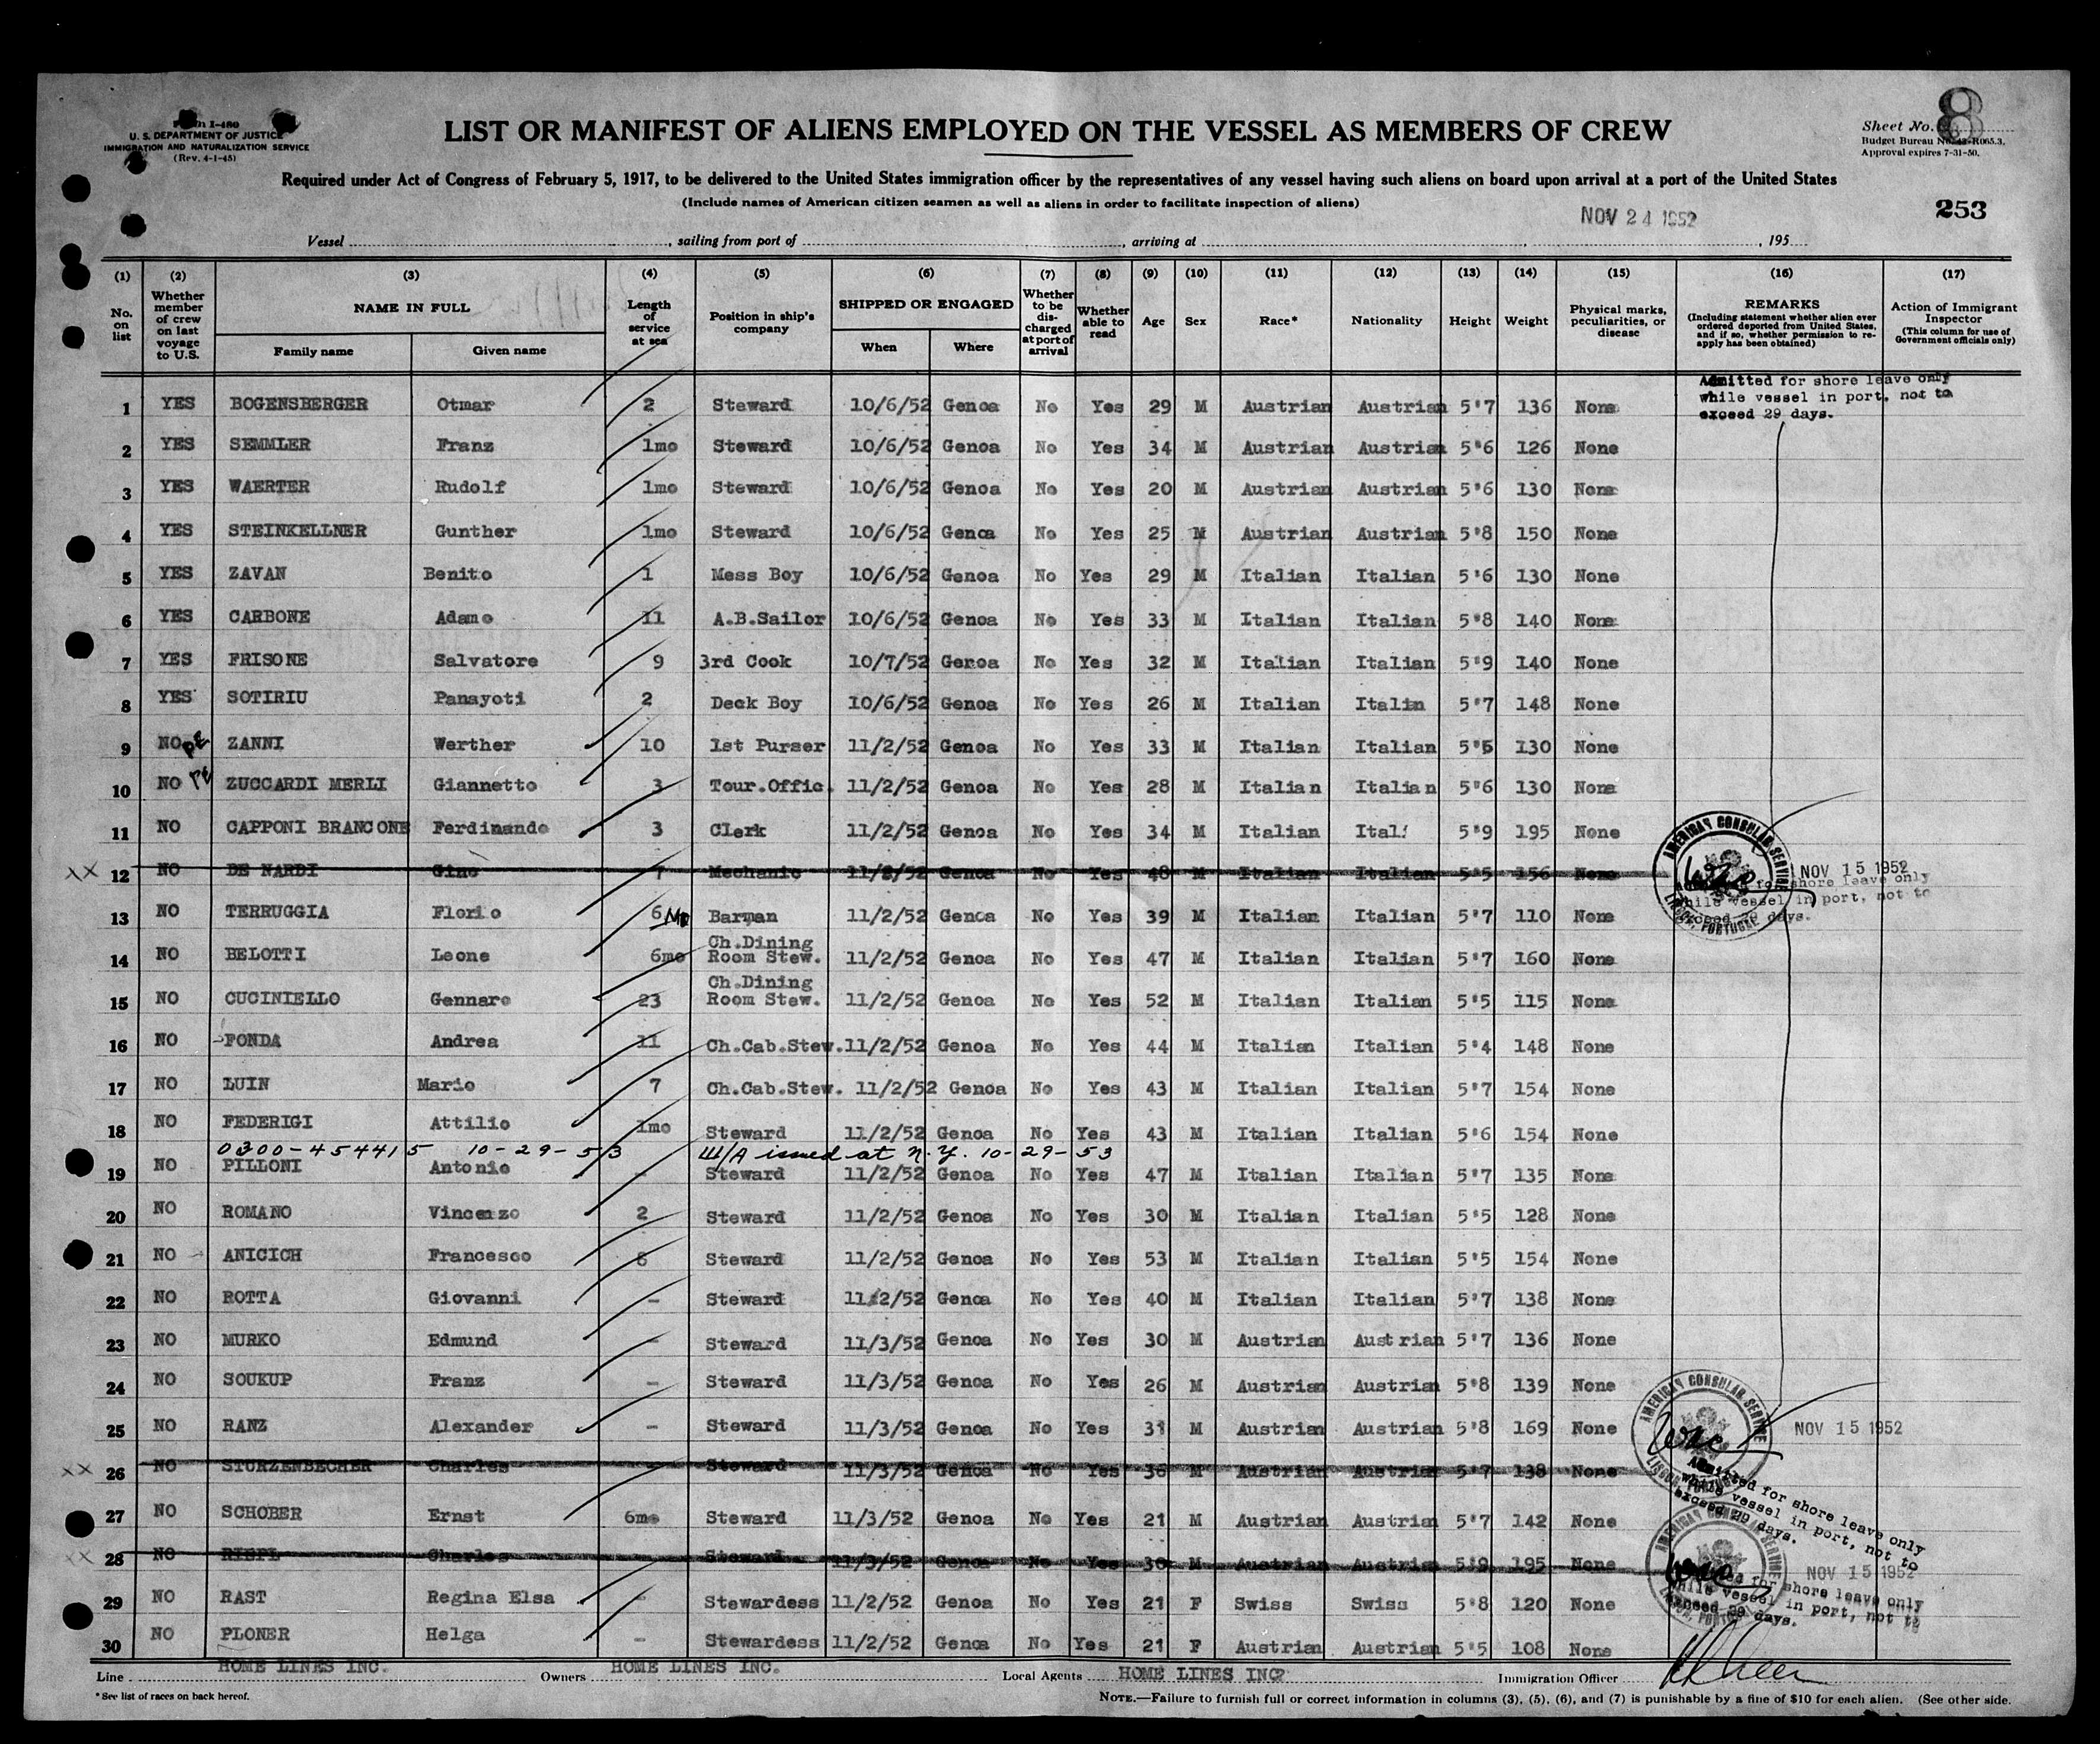 Form I-480
U. S. DEPARTMENT OF JUSTICE
IMMIGRATION AND NATURALIZATION SERVICE
(Rev. 4-1-45)
LIST OR MANIFEST OF ALIENS EMPLOYED ON THE VESSEL AS MEMBERS OF CREW
Sheet No. 8
Budget Bureau No. 43-R065.3.
Approval expires 7-31-50.
Required under Act of Congress of February 5, 1917, to be delivered to the United States immigration officer by the representatives of any vessel having such aliens on board upon arrival at a port of the United States
(Include names of American citizen seamen as well as aliens in order to facilitate inspection of aliens)
NOV 24 1952
253
Vessel , sailing from port of , arriving at , , 195
(1) (2) (3) (4) (5) (6) (7) (8) (9) (10) (11) (12) (13) (14) (15) (16) (17)
No. on list
Whether member of crew on last voyage to U.S.
NAME IN FULL
Family name Given name
Length of service at sea
Position in ship's company
SHIPPED OR ENGAGED
When Where
Whether to be discharged at port of arrival
Whether able to read
Age Sex Race* Nationality Height Weight
Physical marks, peculiarities, or disease
REMARKS
(Including statement whether alien ever ordered deported from United States, and if so, whether permission to re-apply has been obtained)
Action of Immigrant Inspector
(This column for use of Government officials only)
Admitted for shore leave only
while vessel in port, not to
exceed 29 days.
1 YES BOGENSBERGER Otmar 2 Steward 10/6/52 Genoa No Yes 29 M Austrian Austrian 5'7 136 None
2 YES SEMMLER Franz 1mo Steward 10/6/52 Genoa No Yes 34 M Austrian Austrian 5'6 126 None
3 YES WAERTER Rudolf 1mo Steward 10/6/52 Genoa No Yes 20 M Austrian Austrian 5'6 130 None
4 YES STEINKELLNER Gunther 1mo Steward 10/6/52 Genoa No Yes 25 M Austrian Austrian 5'8 150 None
5 YES ZAVAN Benito 1 Mess Boy 10/6/52 Genoa No Yes 29 M Italian Italian 5'6 130 None
6 YES CARBONE Adamo 11 A.B.Sailor 10/6/52 Genoa No Yes 33 M Italian Italian 5'8 140 None
7 YES FRISONE Salvatore 9 3rd Cook 10/7/52 Genoa No Yes 32 M Italian Italian 5'9 140 None
8 YES SOTIRIU Panayoti 2 Deck Boy 10/6/52 Genoa No Yes 26 M Italian Italin 5'7 148 None
9 NO PE ZANNI Werther 10 1st Purser 11/2/52 Genoa No Yes 33 M Italian Italian 5'5 130 None
10 NO PE ZUCCARDI MERLI Giannetto 3 Tour.Offic. 11/2/52 Genoa No Yes 28 M Italian Italian 5'6 130 None
11 NO CAPPONI BRANCONE Ferdinando 3 Clerk 11/2/52 Genoa No Yes 34 M Italian Itali 5'9 195 None
xx 12 NO DE NARDI Gino 7 Mechanic 11/2/52 Genoa No Yes 48 M Italian Italian 5'5 156 None
AMERICAN CONSULAR SERVICE LISBON, PORTUGAL NOV 15 1952
Admitted for shore leave only
while vessel in port, not to
exceed 29 days.
13 NO TERRUGGIA Florio 6 Mo Barman 11/2/52 Genoa No Yes 39 M Italian Italian 5'7 110 None
14 NO BELOTTI Leone 6mo Ch.Dining Room Stew. 11/2/52 Genoa No Yes 47 M Italian Italian 5'7 160 None
15 NO CUCINIELLO Gennaro 23 Ch.Dining Room Stew. 11/2/52 Genoa No Yes 52 M Italian Italian 5'5 115 None
16 NO FONDA Andrea 11 Ch.Cab.Stew. 11/2/52 Genoa No Yes 44 M Italian Italian 5'4 148 None
17 NO LUIN Mario 7 Ch.Cab.Stew. 11/2/52 Genoa No Yes 43 M Italian Italian 5'7 154 None
18 NO FEDERIGI Attilio 1mo Steward 11/2/52 Genoa No Yes 43 M Italian Italian 5'6 154 None
0300-454415 10-29-53 W/A issued at N.Y. 10-29-53
19 NO PILLONI Antonio - Steward 11/2/52 Genoa No Yes 47 M Italian Italian 5'7 135 None
20 NO ROMANO Vincenzo 2 Steward 11/2/52 Genoa No Yes 30 M Italian Italian 5'5 128 None
21 NO ANICICH Francesco 6 Steward 11/2/52 Genoa No Yes 53 M Italian Italian 5'5 154 None
22 NO ROTTA Giovanni - Steward 11/2/52 Genoa No Yes 40 M Italian Italian 5'7 138 None
23 NO MURKO Edmund - Steward 11/3/52 Genoa No Yes 30 M Austrian Austrian 5'7 136 None
24 NO SOUKUP Franz - Steward 11/3/52 Genoa No Yes 26 M Austrian Austrian 5'8 139 None
25 NO RANZ Alexander - Steward 11/3/52 Genoa No Yes 31 M Austrian Austrian 5'8 169 None
AMERICAN CONSULAR SERVICE LISBON, PORTUGAL NOV 15 1952
xx 26 NO STURZENBECHER Charles - Steward 11/3/52 Genoa No Yes 36 M Austrian Austrian 5'7 138 None
Admitted for shore leave only
while vessel in port, not to
exceed 29 days.
27 NO SCHOBER Ernst 6mo Steward 11/3/52 Genoa No Yes 21 M Austrian Austrian 5'7 142 None
xx 28 NO Charles Steward 11/3/52 Genoa No Yes 30 M Austrian Austrian 5'9 195 None
AMERICAN CONSULAR SERVICE LISBON, PORTUGAL NOV 15 1952
Admitted for shore leave only
while vessel in port, not to
exceed 29 days.
29 NO RAST Regina Elsa - Stewardess 11/2/52 Genoa No Yes 21 F Swiss Swiss 5'8 120 None
30 NO PLONER Helga - Stewardess 11/2/52 Genoa No Yes 21 F Austrian Austrian 5'5 108 None
Line HOME LINES INC. Owners HOME LINES INC. Local Agents HOME LINES INC. Immigration Officer
*See list of races on back hereof.
NOTE.—Failure to furnish full or correct information in columns (3), (5), (6), and (7) is punishable by a fine of $10 for each alien. (See other side.